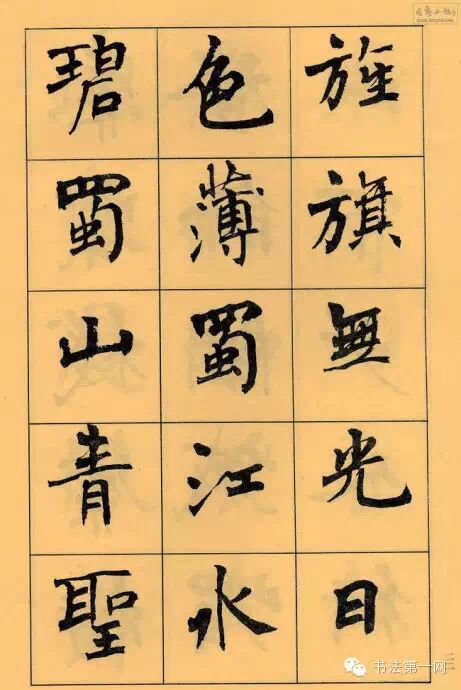 旌旗無光日
色薄蜀江水
碧蜀山青聖
书法第一网